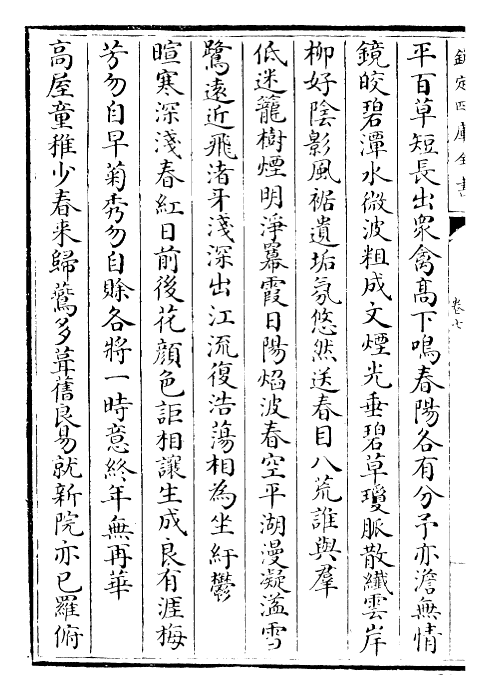 欽定四庫全書
卷七
平百草短長出衆禽髙下鳴春陽各有分予亦澹無情
鏡皎碧潭水微波粗成文煙光垂碧草瓊脈散纖雲岸
柳好陰影風裾遺垢氛悠然送春目八荒誰與羣
低迷籠樹煙明淨羃霞日陽焰波春空平湖漫凝溢雪
鷺遠近飛渚牙淺深出江流復浩蕩相為坐紆鬱
暄寒深淺春紅日前後花顔色詎相讓生成良有涯梅
芳勿自早菊秀勿自賖各將一時意終年無再華
高屋童稚少春来歸鷰多葺舊良易就新院亦已羅俯